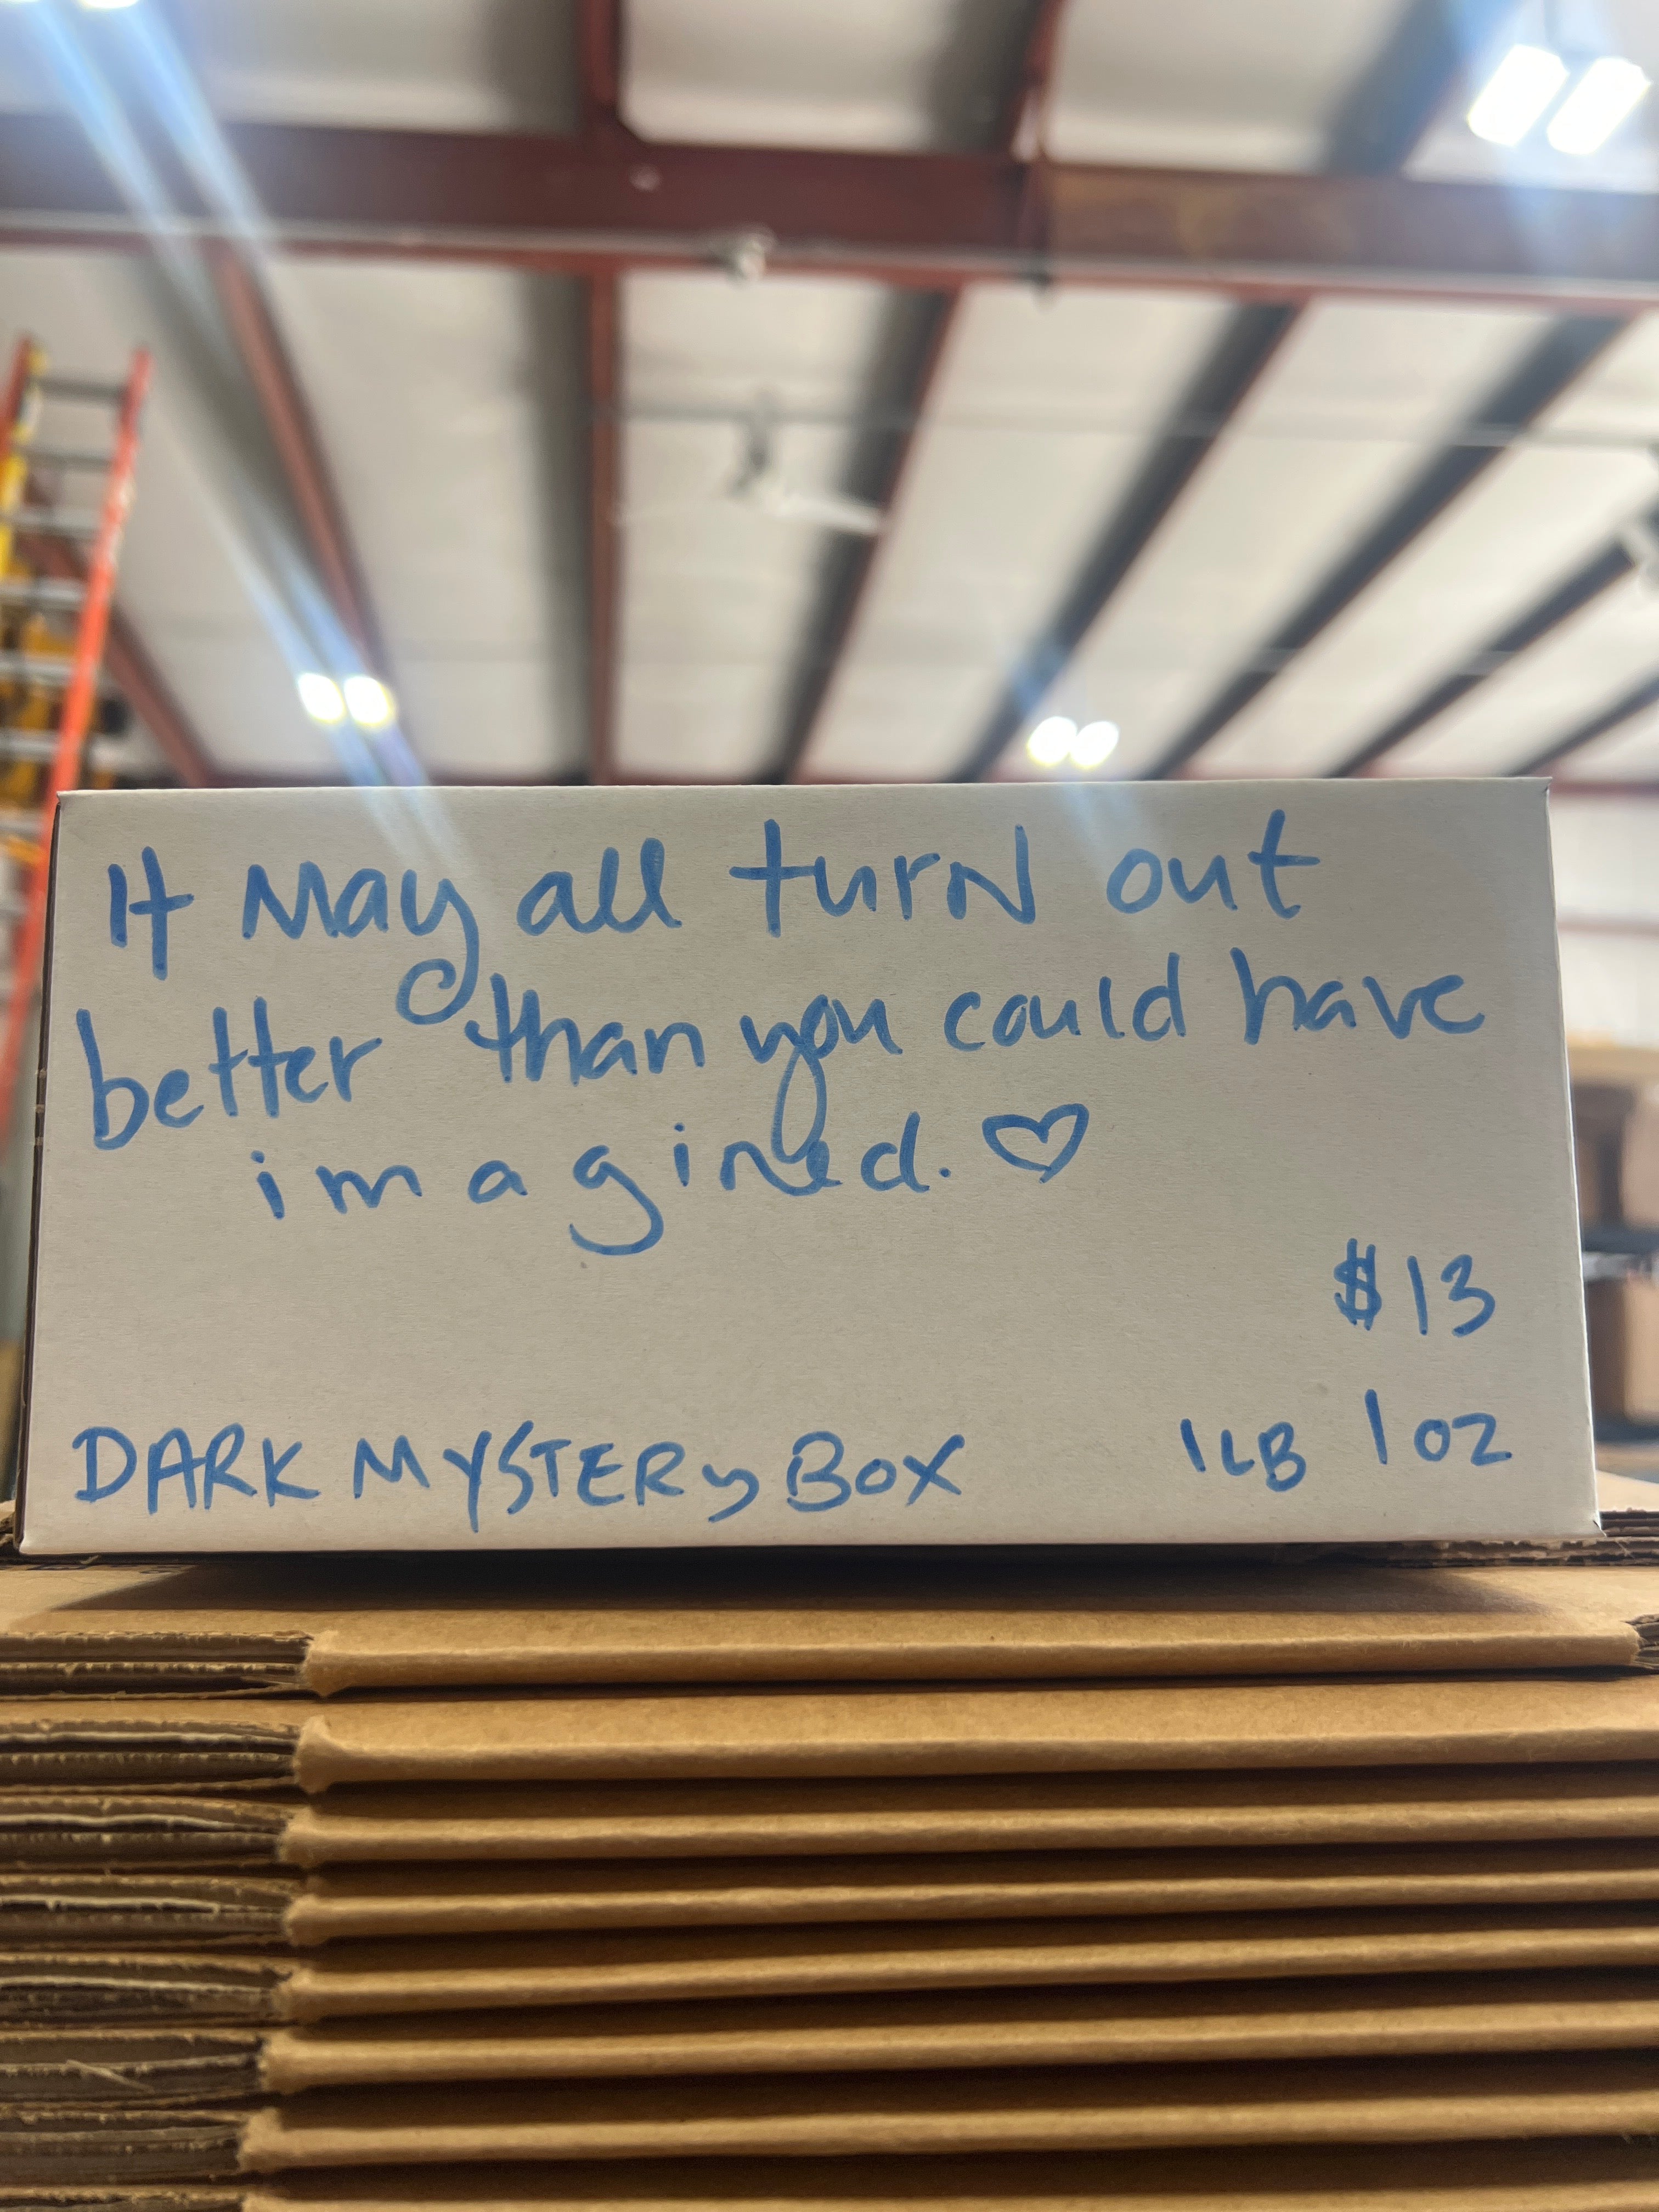 It May all turn out
better than you could have
imagined. ♡
$13
DARK MYSTERy BOX 1LB 1oz